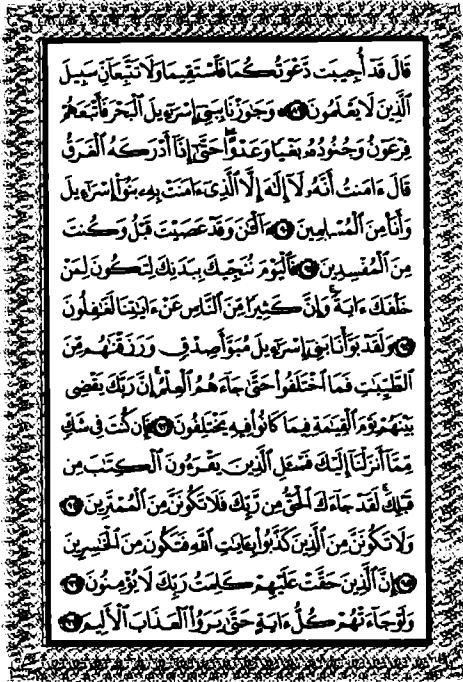 قَالَ قَدْ أُجِيبَت دَّعْوَتُكُمَا فَٱسْتَقِيمَا وَلَا تَتَّبِعَآنِّ سَبِيلَ
ٱلَّذِينَ لَا يَعْلَمُونَ ٨٩ وَجَٰوَزْنَا بِبَنِىٓ إِسْرَٰٓءِيلَ ٱلْبَحْرَ فَأَتْبَعَهُمْ
فِرْعَوْنُ وَجُنُودُهُۥ بَغْيًا وَعَدْوًا حَتَّىٰٓ إِذَآ أَدْرَكَهُ ٱلْغَرَقُ
قَالَ ءَامَنتُ أَنَّهُۥ لَآ إِلَٰهَ إِلَّا ٱلَّذِىٓ ءَامَنَتْ بِهِۦ بَنُوٓا۟ إِسْرَٰٓءِيلَ
وَأَنَا۠ مِنَ ٱلْمُسْلِمِينَ ٩٠ ءَآلْـَٰٔنَ وَقَدْ عَصَيْتَ قَبْلُ وَكُنتَ
مِنَ ٱلْمُفْسِدِينَ ٩١ فَٱلْيَوْمَ نُنَجِّيكَ بِبَدَنِكَ لِتَكُونَ لِمَنْ
خَلْفَكَ ءَايَةً ۚ وَإِنَّ كَثِيرًا مِّنَ ٱلنَّاسِ عَنْ ءَايَٰتِنَا لَغَٰفِلُونَ
٩٢ وَلَقَدْ بَوَّأْنَا بَنِىٓ إِسْرَٰٓءِيلَ مُبَوَّأَ صِدْقٍ وَرَزَقْنَٰهُم مِّنَ
ٱلطَّيِّبَٰتِ فَمَا ٱخْتَلَفُوا۟ حَتَّىٰ جَآءَهُمُ ٱلْعِلْمُ ۚ إِنَّ رَبَّكَ يَقْضِى
بَيْنَهُمْ يَوْمَ ٱلْقِيَٰمَةِ فِيمَا كَانُوا۟ فِيهِ يَخْتَلِفُونَ ٩٣ فَإِن كُنتَ فِى شَكٍّ
مِّمَّآ أَنزَلْنَآ إِلَيْكَ فَسْـَٔلِ ٱلَّذِينَ يَقْرَءُونَ ٱلْكِتَٰبَ مِن
قَبْلِكَ ۚ لَقَدْ جَآءَكَ ٱلْحَقُّ مِن رَّبِّكَ فَلَا تَكُونَنَّ مِنَ ٱلْمُمْتَرِينَ ٩٤
وَلَا تَكُونَنَّ مِنَ ٱلَّذِينَ كَذَّبُوا۟ بِـَٔايَٰتِ ٱللَّهِ فَتَكُونَ مِنَ ٱلْخَٰسِرِينَ
٩٥ إِنَّ ٱلَّذِينَ حَقَّتْ عَلَيْهِمْ كَلِمَتُ رَبِّكَ لَا يُؤْمِنُونَ ٩٦
وَلَوْ جَآءَتْهُمْ كُلُّ ءَايَةٍ حَتَّىٰ يَرَوُا۟ ٱلْعَذَابَ ٱلْأَلِيمَ ٩٧